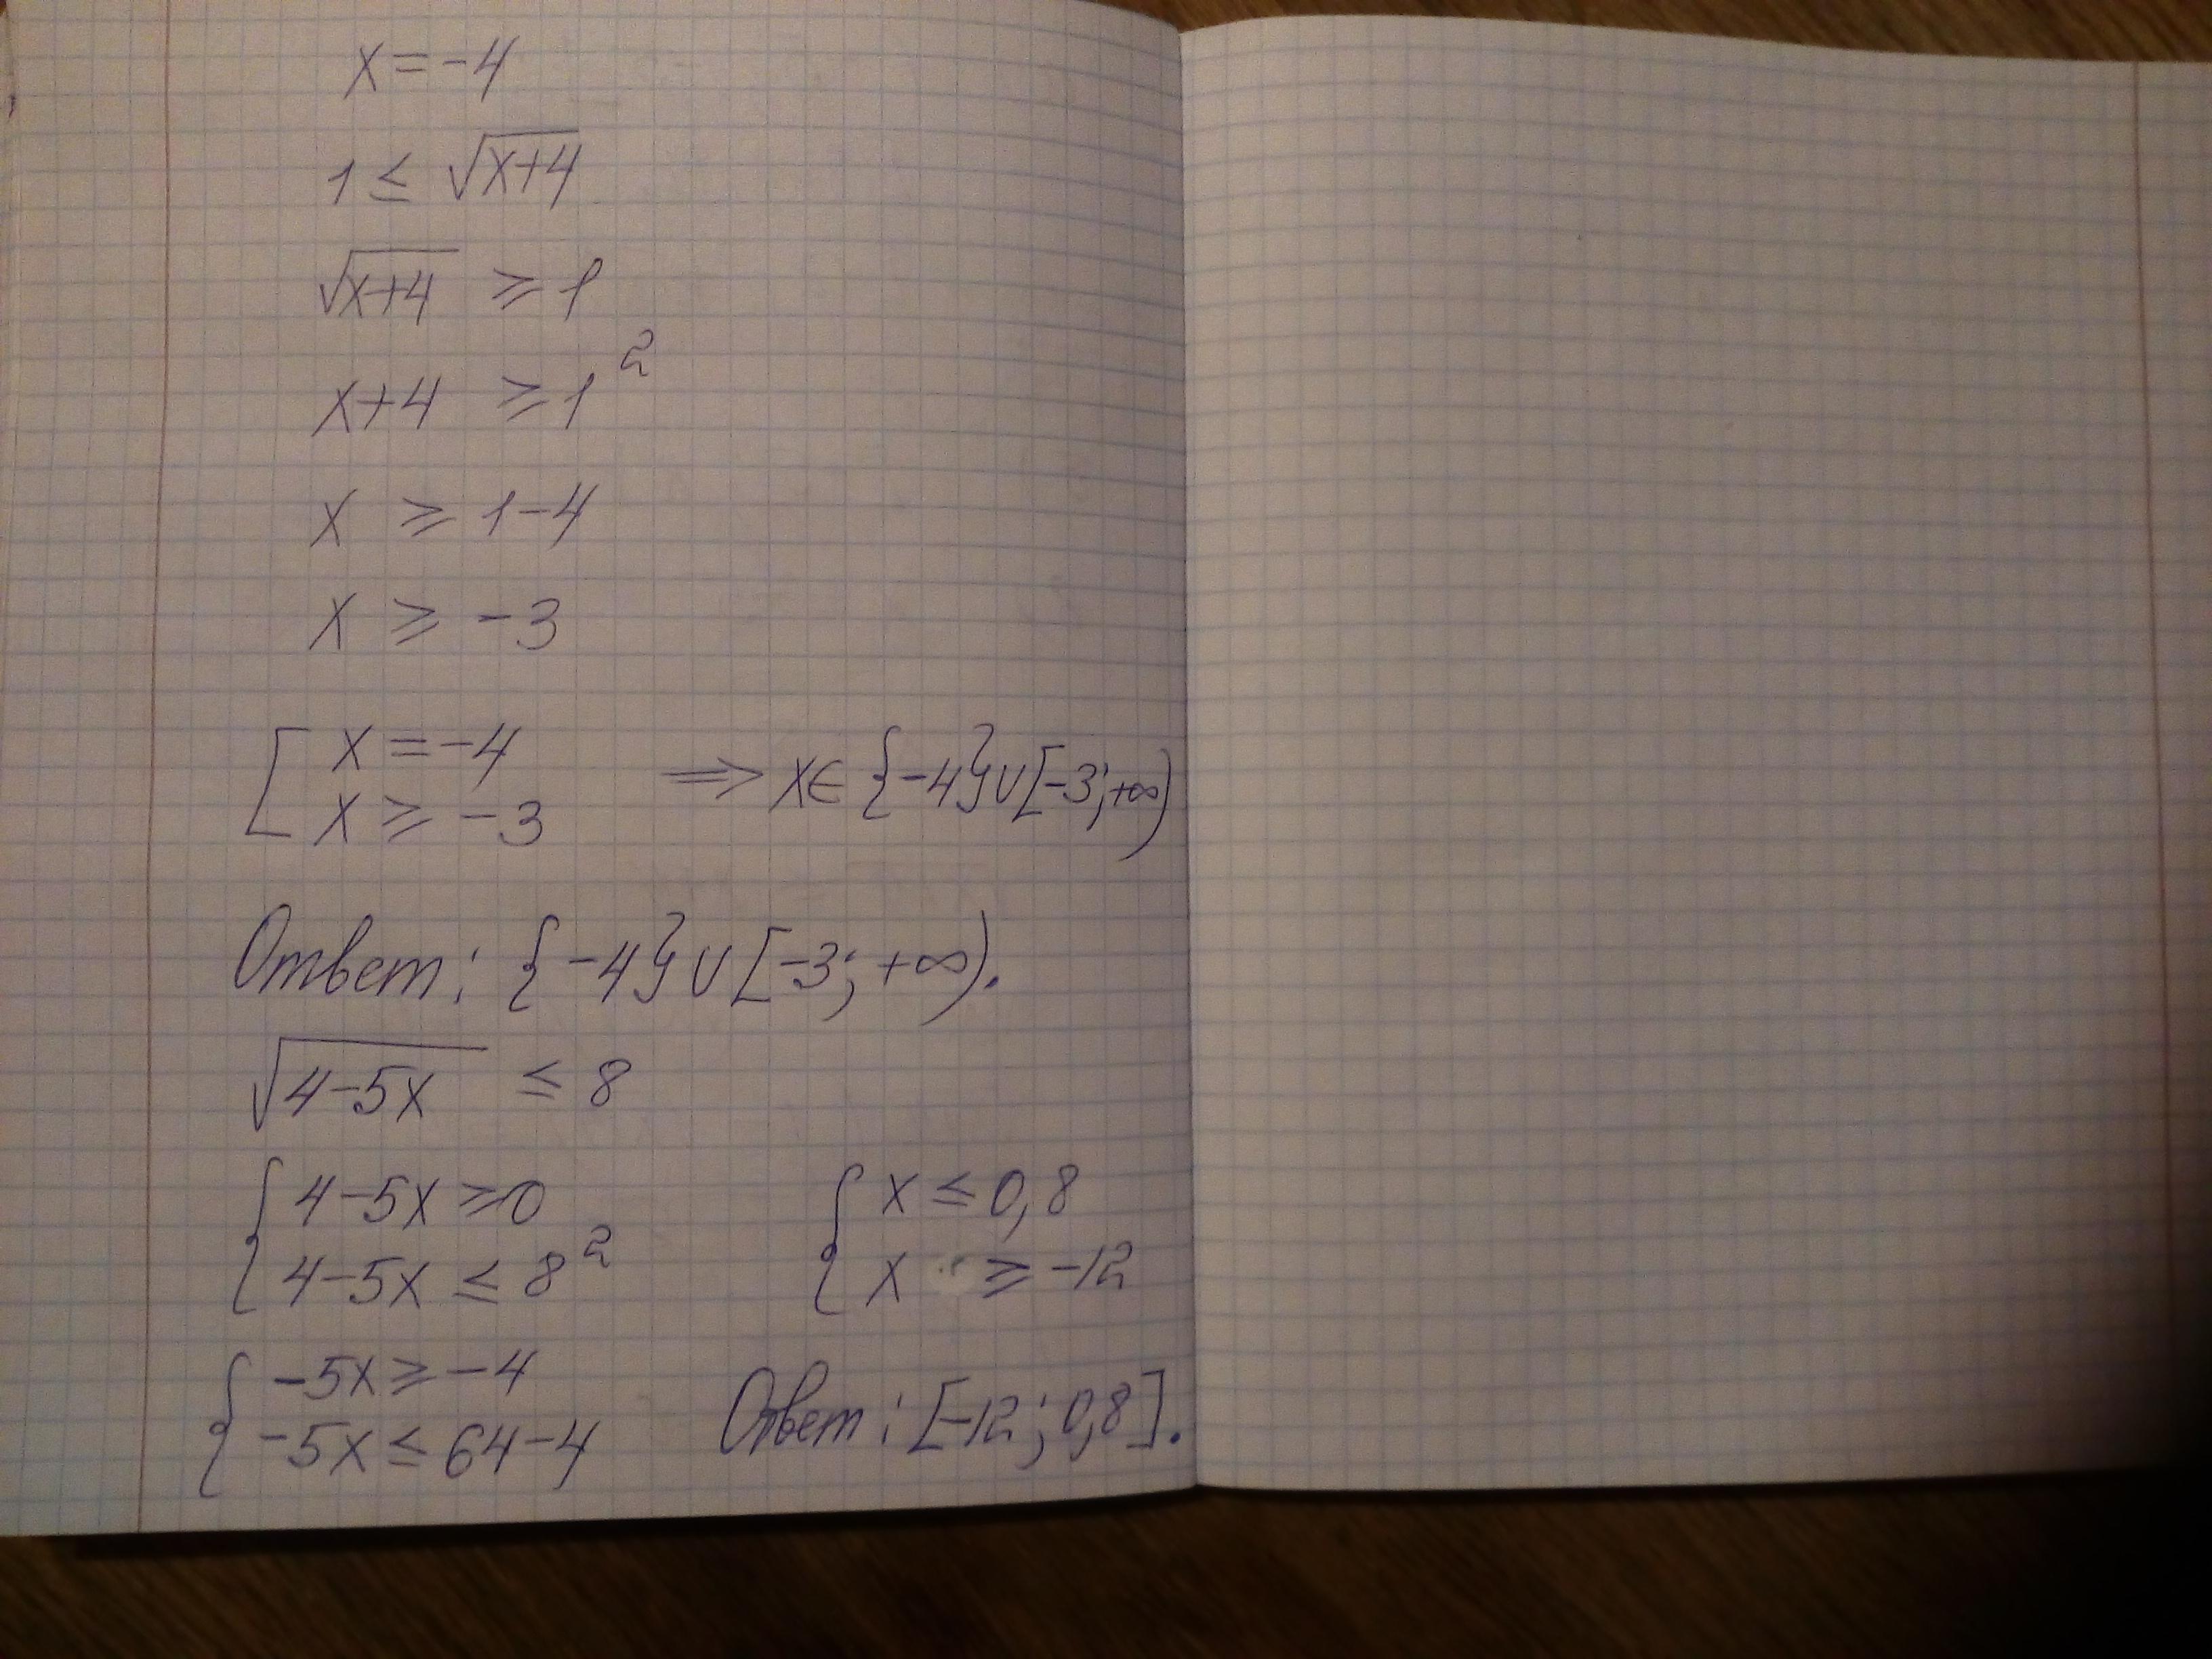 x = -4
1 ≤ √(x+4)
√(x+4) ≥ 1
x+4 ≥ 1²
x ≥ 1-4
x ≥ -3
[ x = -4
x ≥ -3 ⟹ x ∈ {-4} ∪ [-3; +∞)
Ответ: {-4} ∪ [-3; +∞).
√(4-5x) ≤ 8
{ 4-5x ≥ 0
4-5x ≤ 8²
{ -5x ≥ -4
-5x ≤ 64-4
{ x ≤ 0,8
x ≥ -12
Ответ: [-12; 0,8].